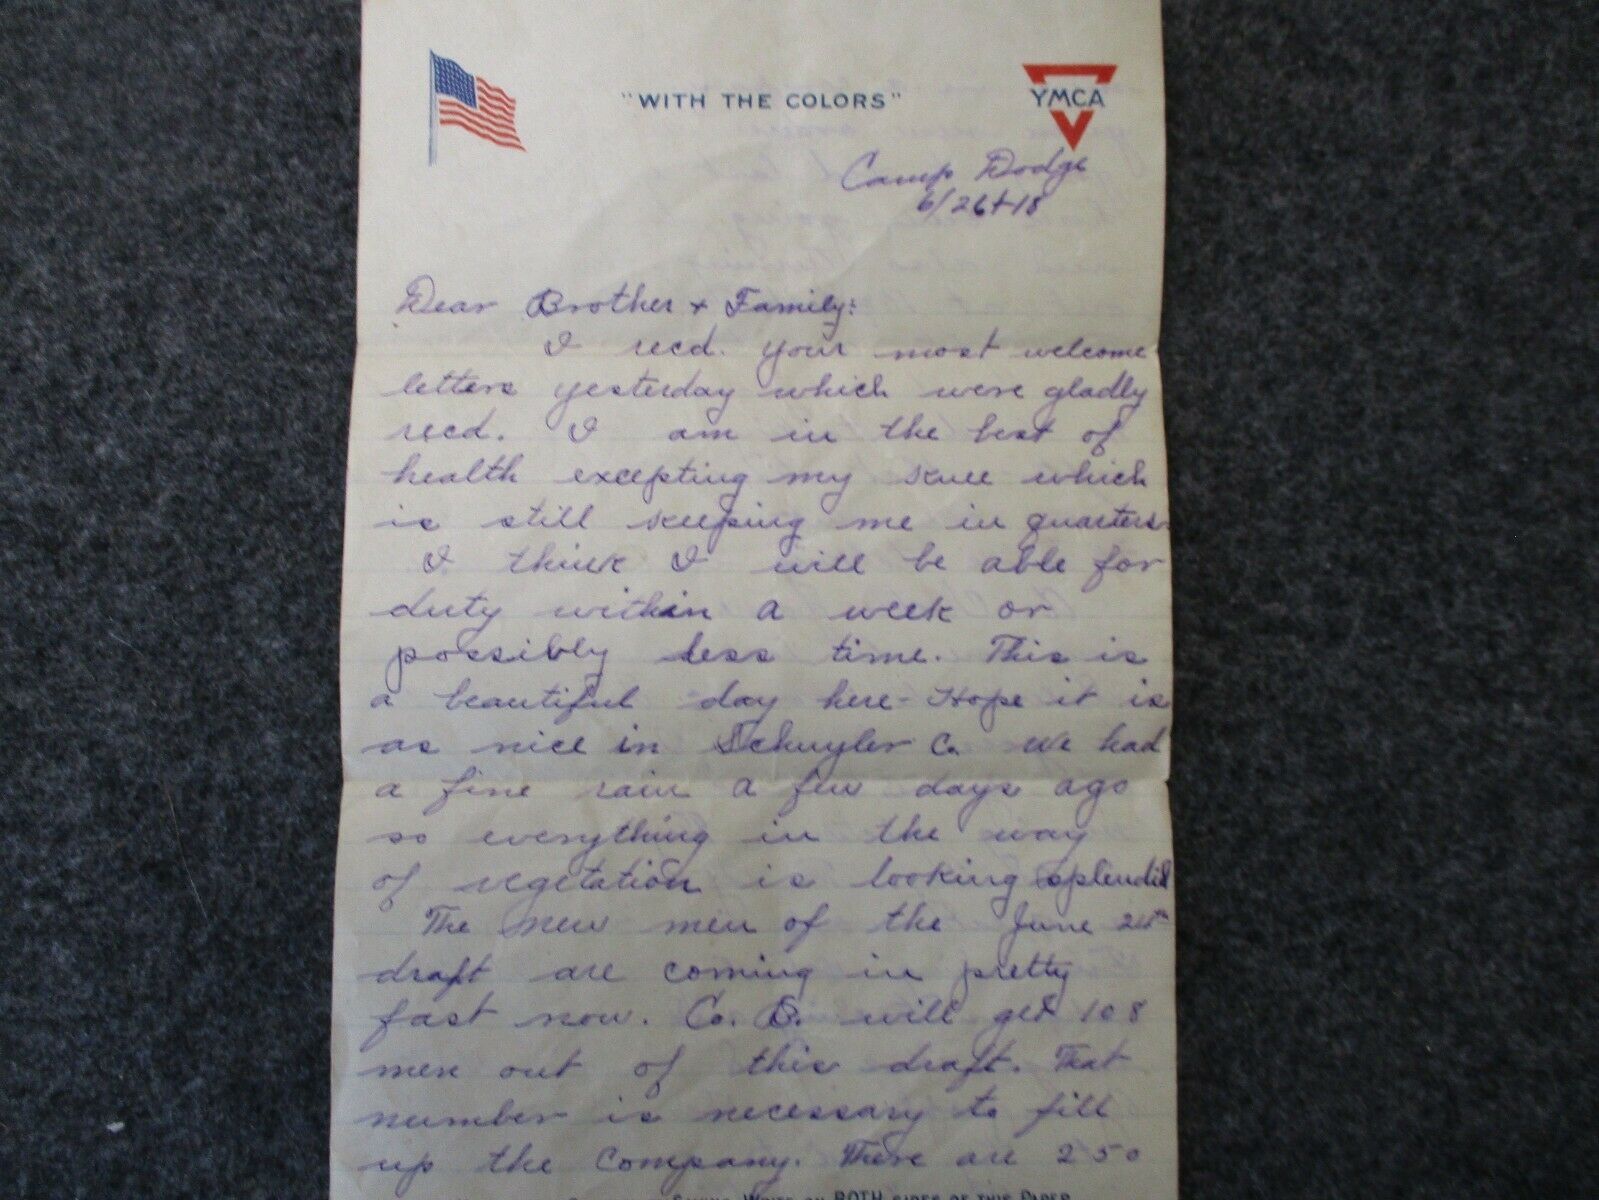 "WITH THE COLORS"
YMCA
Camp Dodge
6/26+18
Dear Brother + Family:
I recd. your most welcome
letters yesterday which were gladly
recd. I am in the best of
health excepting my knee which
is still keeping me in quarters.
I think I will be able for
duty within a week or
possibly less time. This is
a beautiful day here - Hope it is
as nice in Schuyler Co. We had
a fine rain a few days ago
so everything in the way
of vegetation is looking splendid
The new men of the June 24th
draft are coming in pretty
fast now. Co. B. will get 108
men out of this draft. That
number is necessary to fill
up the Company. There are 250
WRITE ON BOTH SIDES OF THIS PAPER